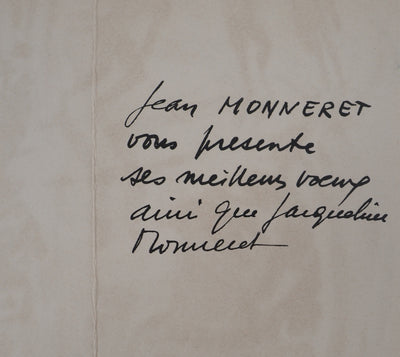 Jean MONNERET
vous presente
ses meilleurs voeux
ainsi que Jacqueline
Monneret